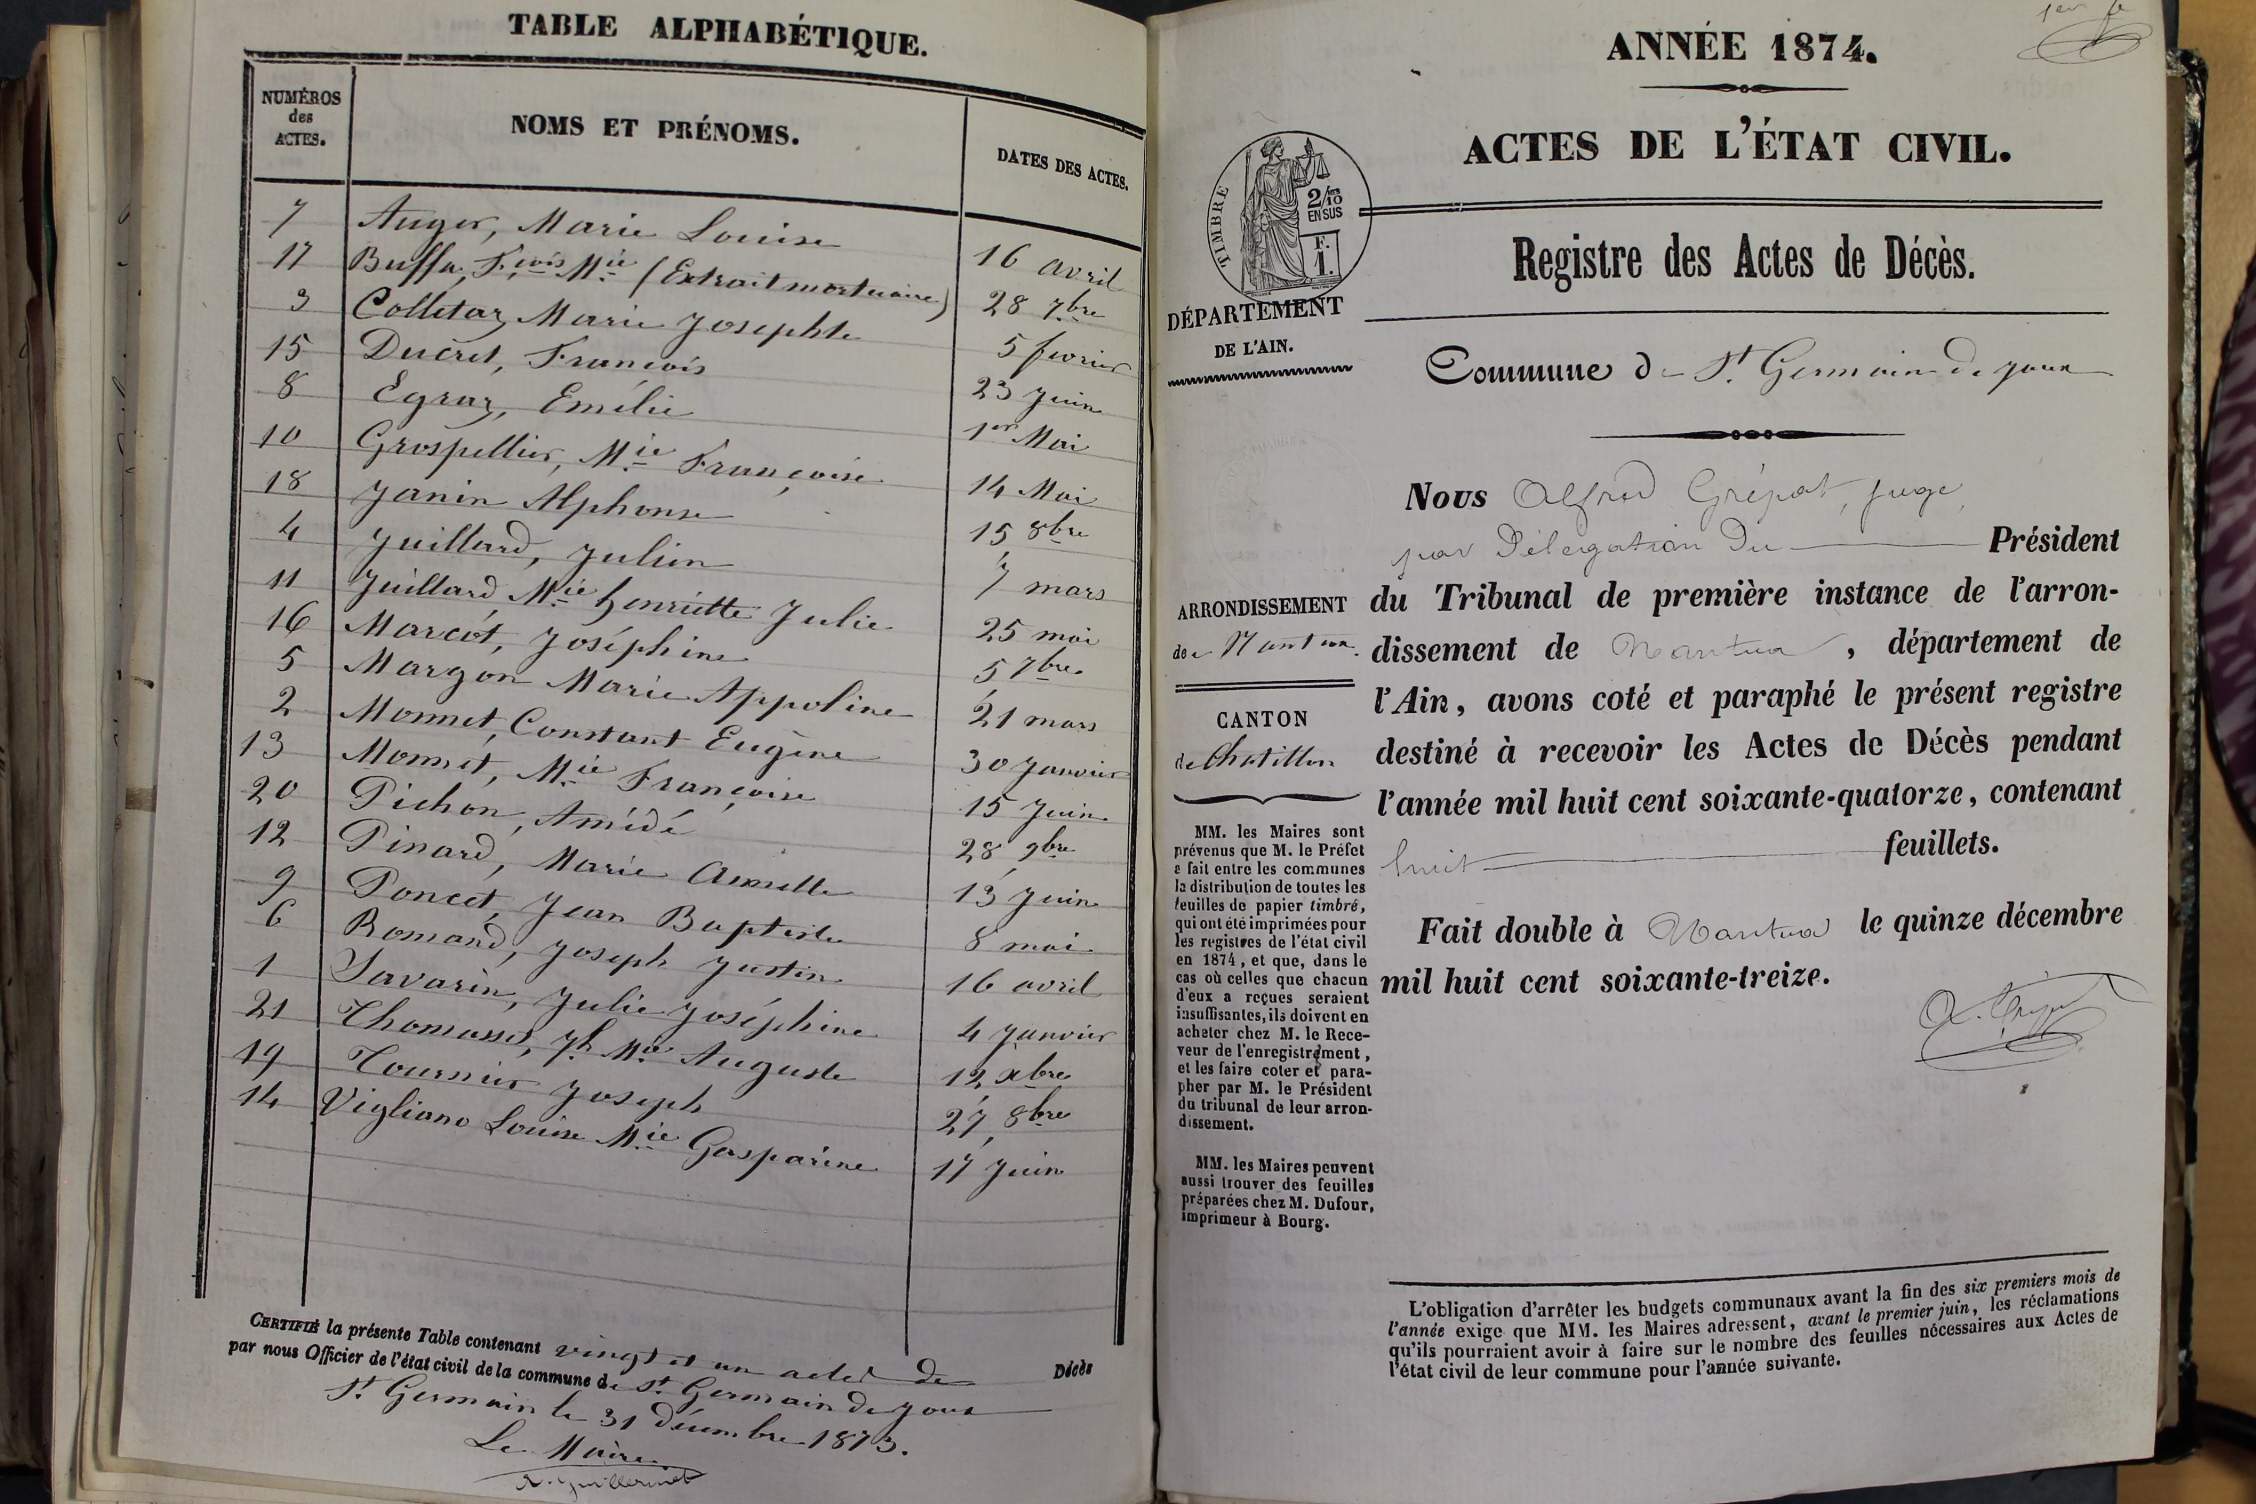 TABLE ALPHABÉTIQUE.
NUMÉROS des ACTES.
NOMS ET PRÉNOMS.
DATES DES ACTES.
7 Auger, Marie Louise 16 avril
17 Buffa, F.çois M.ie (Extrait mortuaire) 28 7bre
3 Colletaz Marie Josephte 5 fevrier
15 Ducret, François 23 Juin
8 Egraz, Emélie 1er Mai
10 Grospellier, M.ie Françoise 14 Mai
18 Janin Alphonse 15 8bre
4 Juillard, Julien 7 mars
11 Juillard M.ie henriette Julie 25 mai
16 Marcôt, Joséphine 5 7bre
5 Margon Marie Appoline 21 mars
2 Monnet, Constant Eugène 30 Janvier
13 Monnet, M.ie Françoise 15 Juin
20 Pichon, Amédé 28 9bre
12 Pinard, Marie 13 Juin
9 Poncet, Jean Baptiste 8 mai
6 Romand, Joseph Justin 16 avril
1 Savarin, Julie Joséphine 4 Janvier
21 Thomasset, Jh M.ie Auguste 12 xbre
19 Tournier Joseph 27 8bre
14 Vigliano Louise M.ie Gasparine 17 Juin
CERTIFIÉ la présente Table contenant vingt et un actes de Décès
par nous Officier de l'état civil de la commune de St. Germain de joux
St. Germain le 31 Décembre 1873.
Le Maire
ANNÉE 1874.
ACTES DE L'ÉTAT CIVIL.
TIMBRE
2/10 EN SUS
F. 1.
Registre des Actes de Décès.
DÉPARTEMENT
DE L'AIN.
Commune de St. Germain de joux
Nous Alfred Grépat, juge,
par Délégation Du Président
du Tribunal de première instance de l'arron-
dissement de Nantua, département de
l'Ain, avons coté et paraphé le présent registre
destiné à recevoir les Actes de Décès pendant
l'année mil huit cent soixante-quatorze, contenant
huit feuillets.
Fait double à Nantua le quinze décembre
mil huit cent soixante-treize.
ARRONDISSEMENT
de Nantua.
CANTON
de Chatillon
MM. les Maires sont
prévenus que M. le Préfet
a fait entre les communes
la distribution de toutes les
feuilles de papier timbré,
qui ont été imprimées pour
les registres de l'état civil
en 1874, et que, dans le
cas où celles que chacun
d'eux a reçues seraient
insuffisantes, ils doivent en
acheter chez M. le Rece-
veur de l'enregistrement,
et les faire coter et para-
pher par M. le Président
du tribunal de leur arron-
dissement.
MM. les Maires peuvent
aussi trouver des feuilles
préparées chez M. Dufour,
imprimeur à Bourg.
L'obligation d'arrêter les budgets communaux avant la fin des six premiers mois de
l'année exige que MM. les Maires adressent, avant le premier juin, les réclamations
qu'ils pourraient avoir à faire sur le nombre des feuilles nécessaires aux Actes de
l'état civil de leur commune pour l'année suivante.